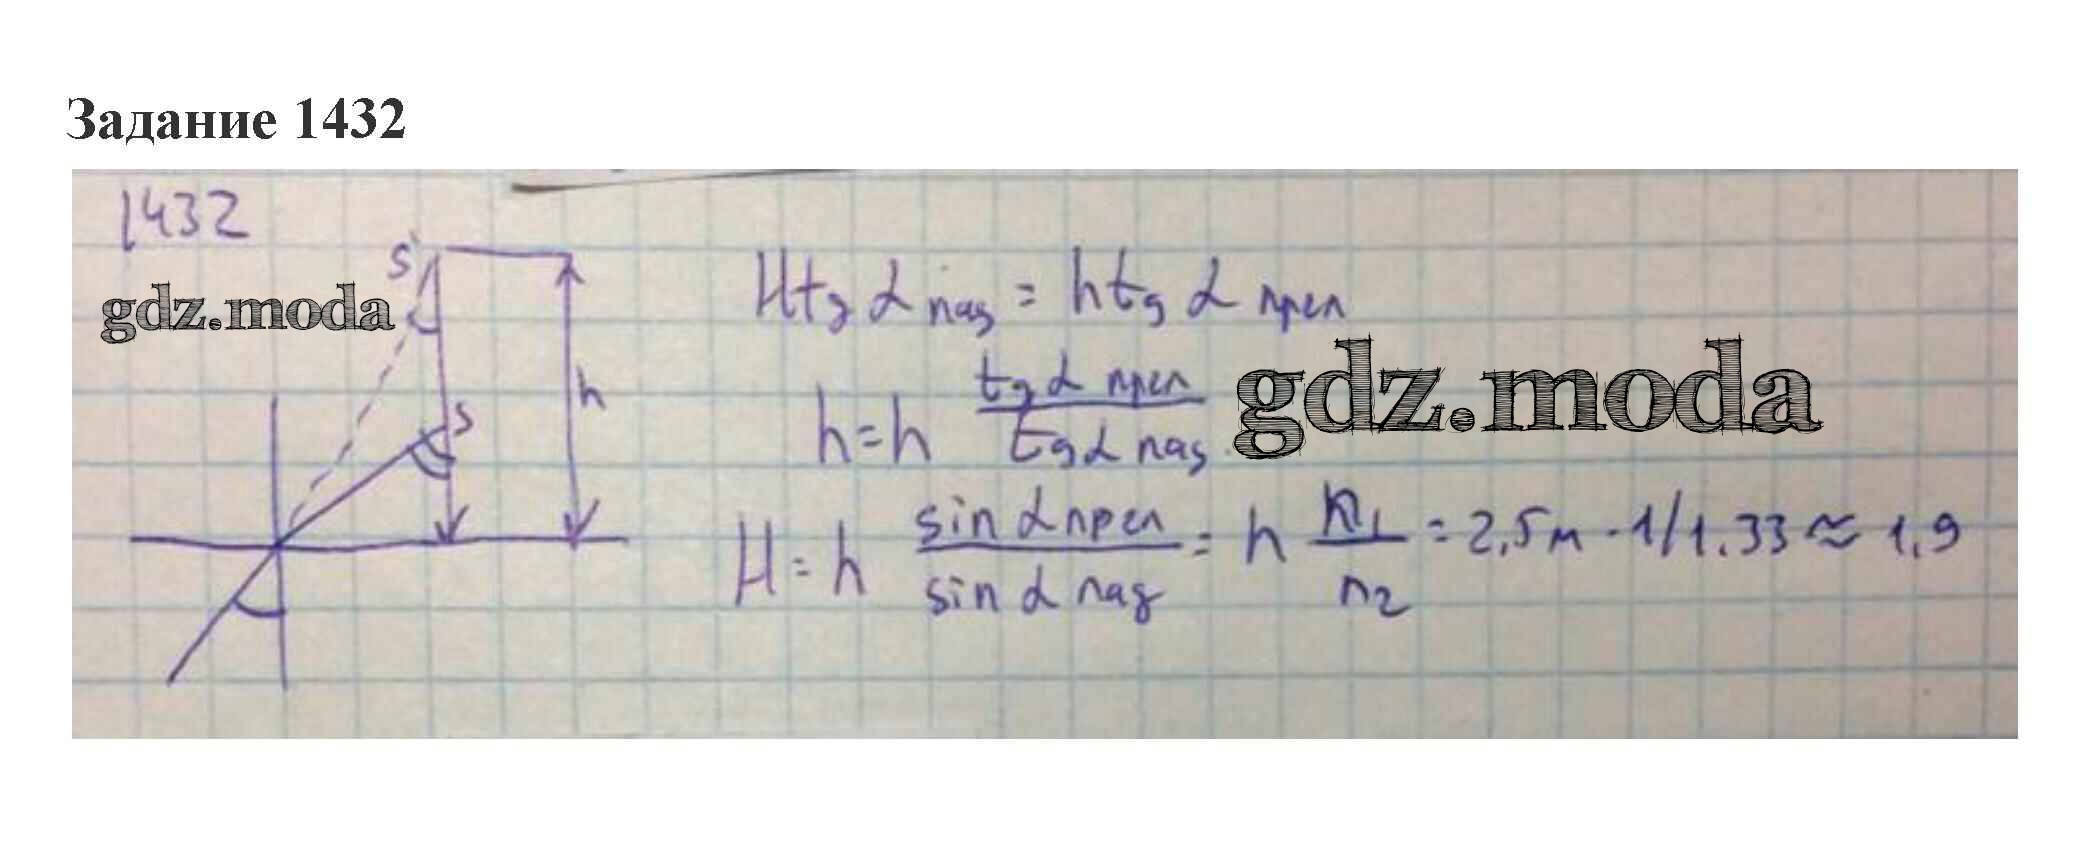 Задание 1432
1432
S'
gdz.moda
h
S
H tg α пад = h tg α прел
h = h tg α прел / tg α пад
gdz.moda
H = h sin α прел / sin α пад = h n1 / n2 = 2,5м · 1/1.33 ≈ 1,9